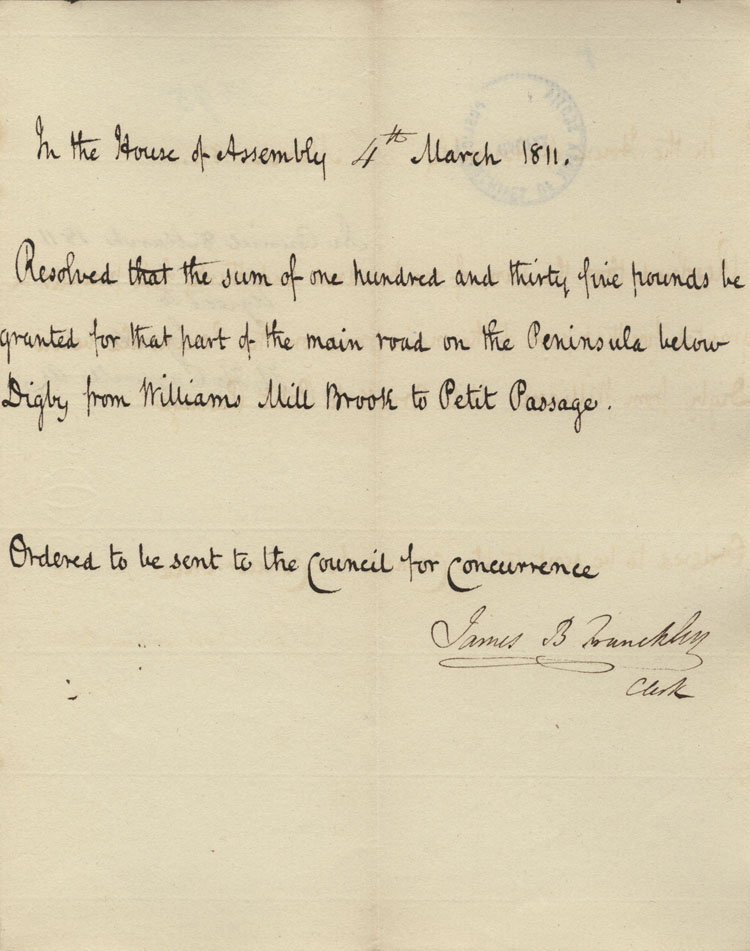 In the House of Assembly 4th March 1811.
Resolved that the sum of one hundred and thirty five pounds be
granted for that part of the main road on the Peninsula below
Digby from Williams Mill Brook to Petit Passage.
Ordered to be sent to the Council for Concurrence
James B Franchlin
Clerk